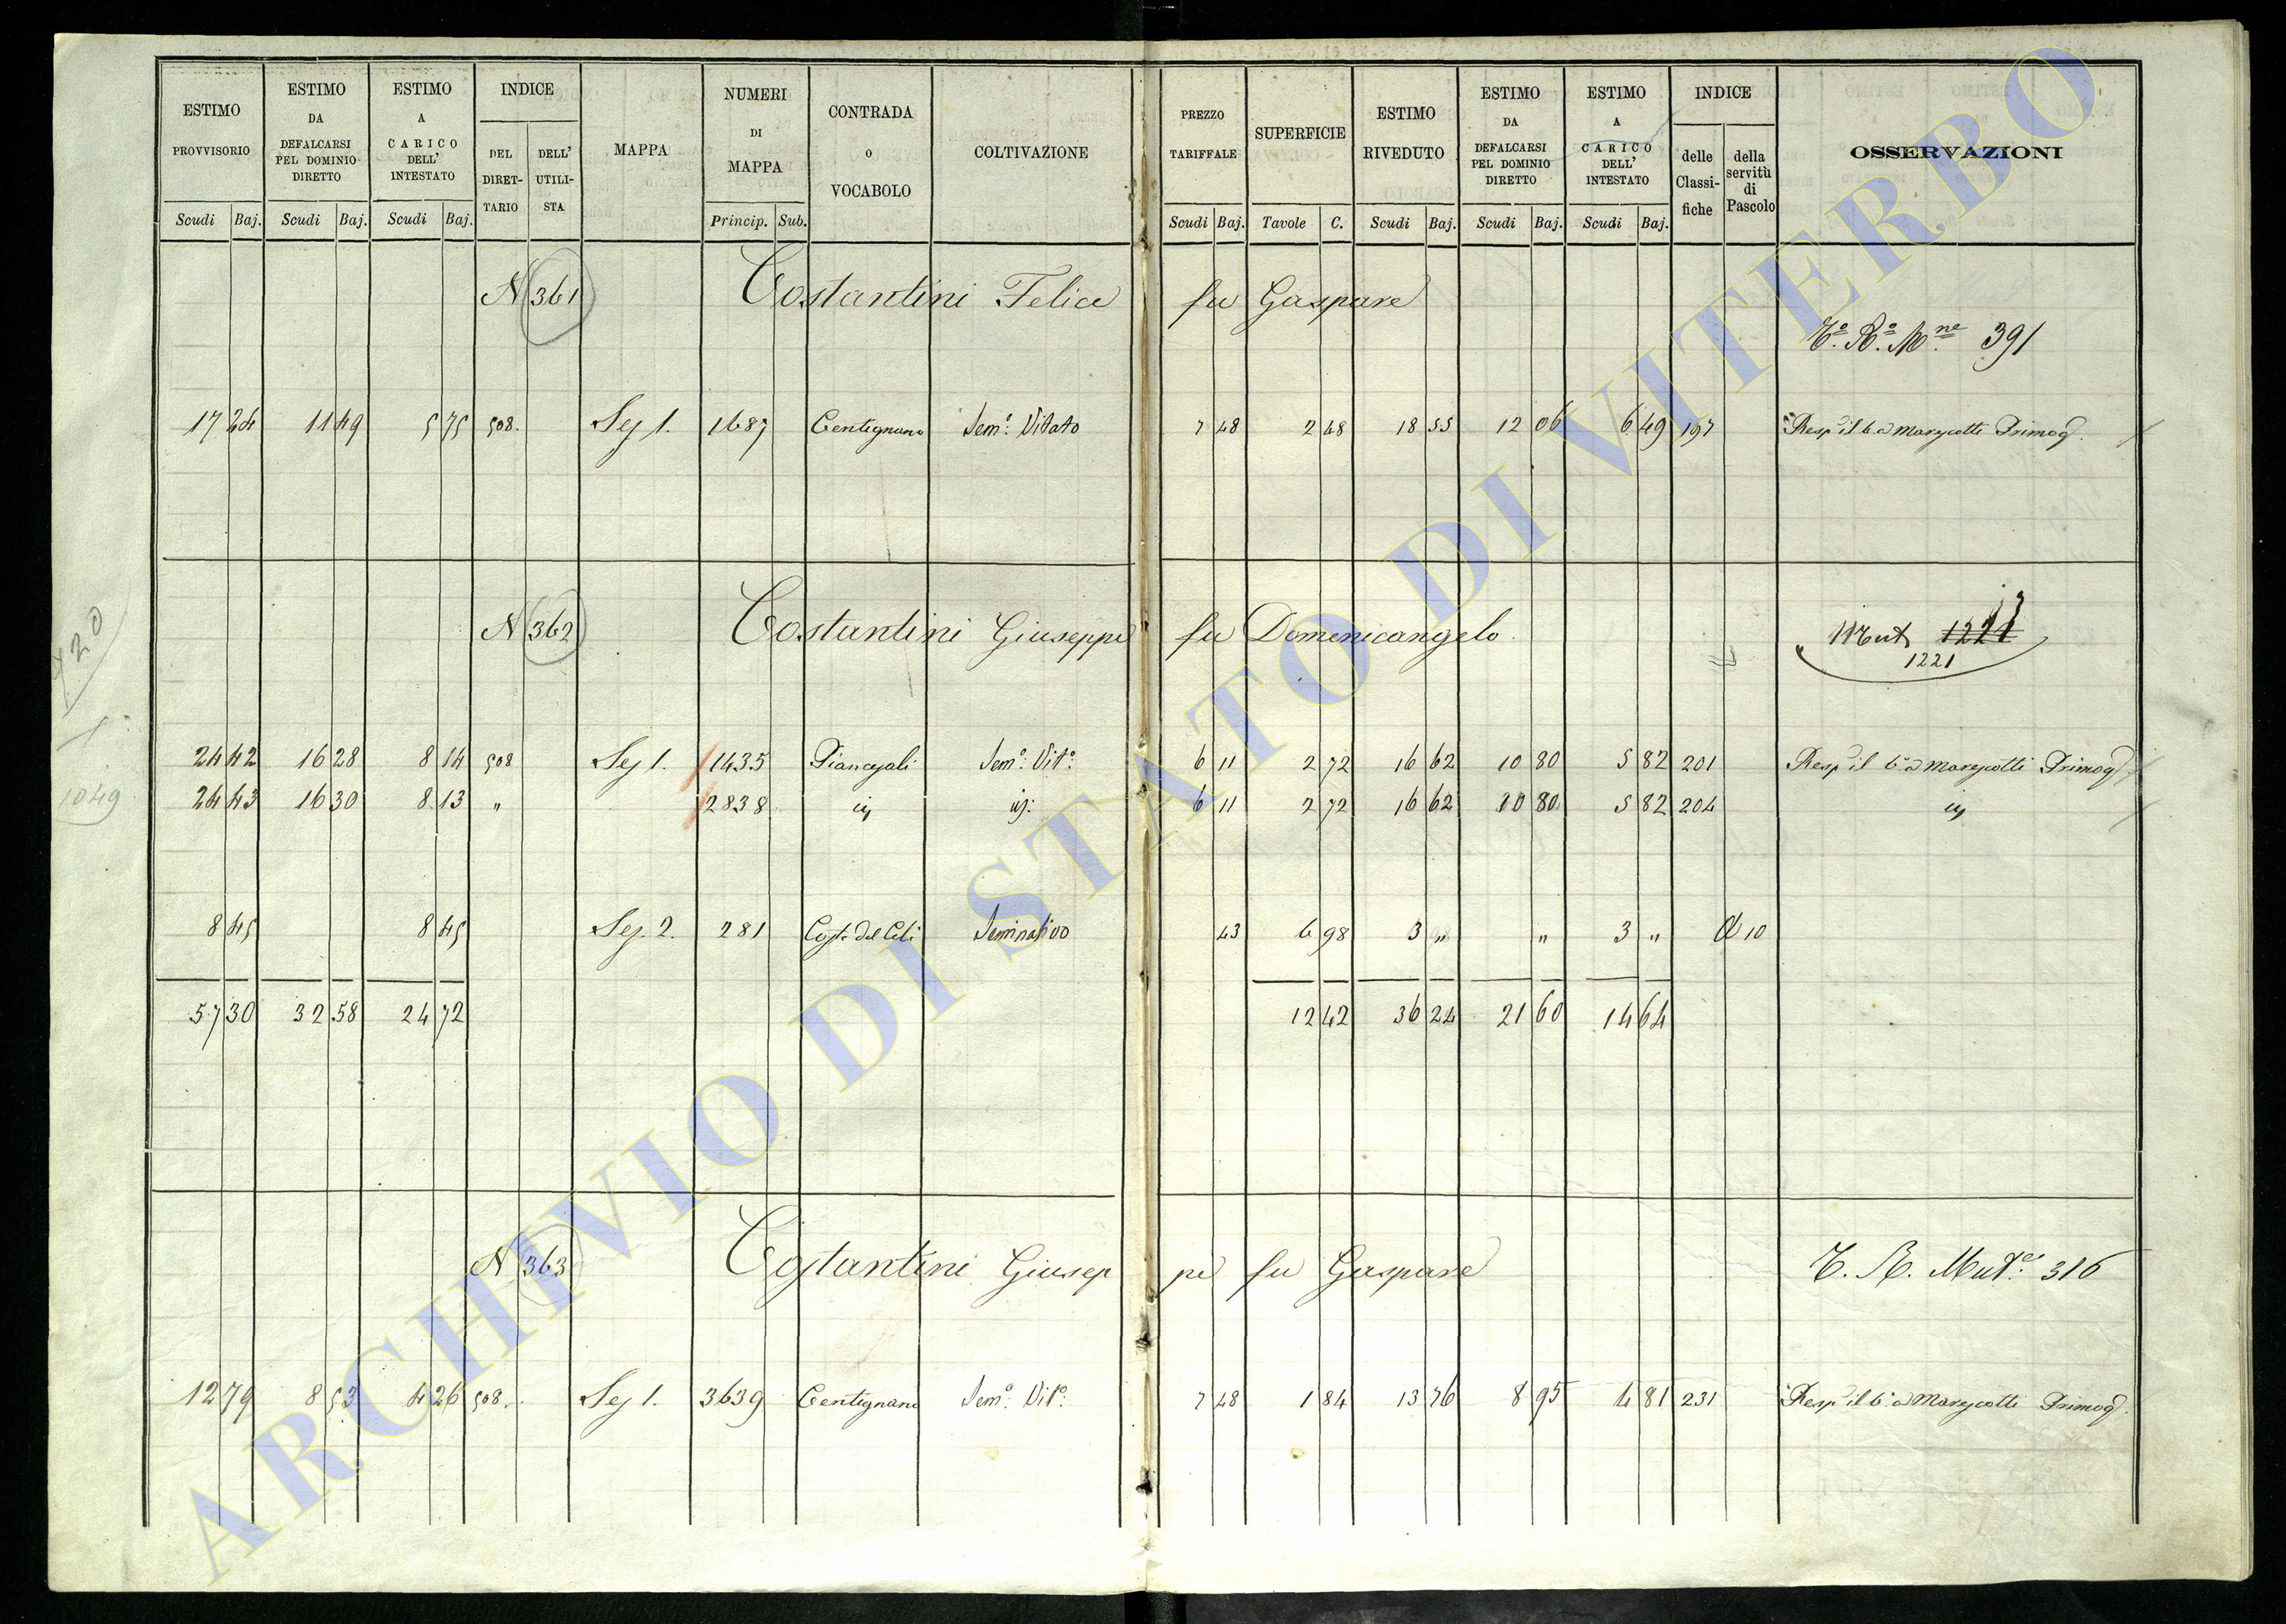 ESTIMO PROVVISORIO Scudi Baj.
ESTIMO DA DEFALCARSI PEL DOMINIO DIRETTO Scudi Baj.
ESTIMO A CARICO DELL' INTESTATO Scudi Baj.
INDICE DEL DIRET-TARIO DELL' UTILI-STA
MAPPA
NUMERI DI MAPPA Princip. Sub.
CONTRADA o VOCABOLO
COLTIVAZIONE
PREZZO TARIFFALE Scudi Baj.
SUPERFICIE Tavole C.
ESTIMO RIVEDUTO Scudi Baj.
ESTIMO DA DEFALCARSI PEL DOMINIO DIRETTO Scudi Baj.
ESTIMO A CARICO DELL' INTESTATO Scudi Baj.
INDICE delle Classi-fiche della servitù di Pascolo
OSSERVAZIONI
N 361 Costantini Felice fu Gaspare
391
17 24 11 49 5 75 508. Sez 1. 1687 Centignano Sem.º Vitato 7 48 2 48 18 55 12 06 6 49 197 Resp il Marescotti Primog
N 362 Costantini Giuseppe fu Domenicangelo
1221
420
24 42 16 28 8 14 508 Sez 1. 1435 Piancajali Sem.º Vit.º 6 11 2 72 16 62 10 80 5 82 201 Resp il Marescotti Primog
1049
24 43 16 30 8 13 " 2838 6 11 2 72 16 62 10 80 5 82 204
8 45 8 45 Sez. 2. 281 Seminativo 43 6 98 3 " " 3 " 10
57 30 32 58 24 72 12 42 36 24 21 60 14 64
N 363 Costantini Giusep pe fu Gaspare
316
12 79 8 53 4 26 508. Sez 1. 3639 Centignano Sem.º Vit.º 7 48 1 84 13 76 8 95 4 81 231 Resp il Marescotti Primog
ARCHIVIO DI STATO DI VITERBO